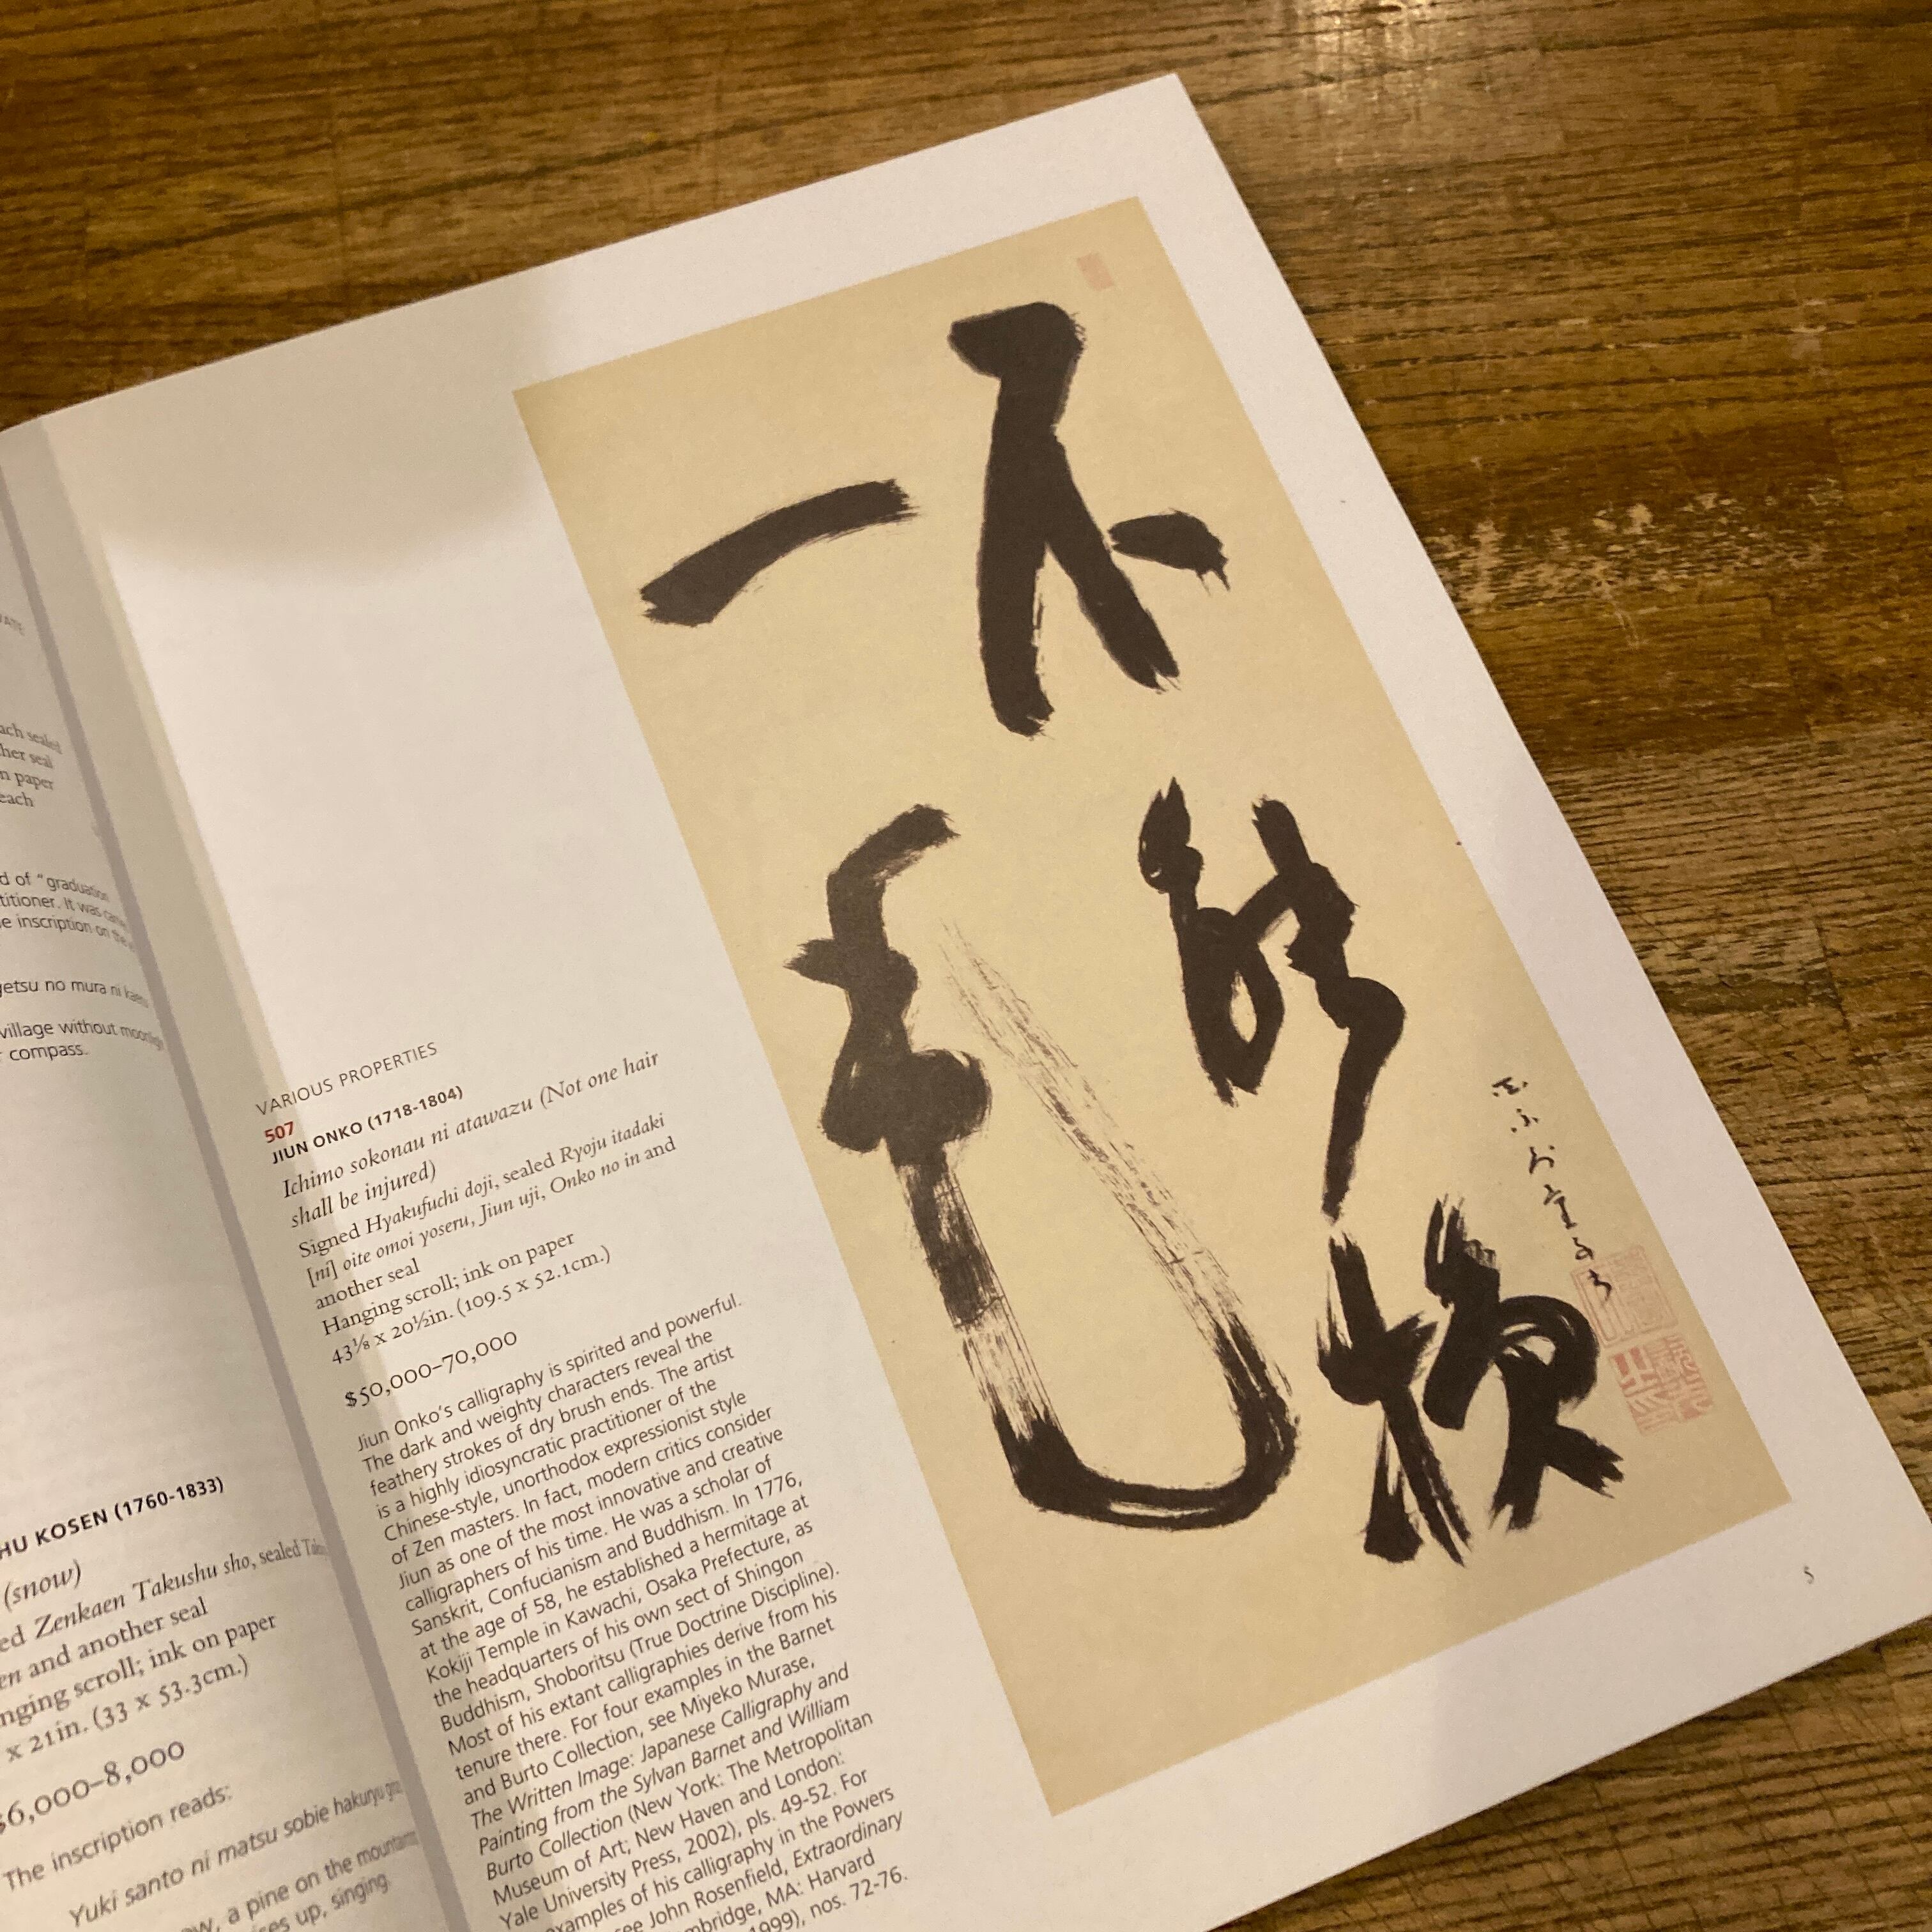 ach sealed
her seal
n paper
each
d of "graduation
titioner. It was
e inscription on the
getsu no mura ni
village without moonlight
r compass.
HU KOSEN (1760-1833)
(snow)
ed Zenkaen Takushu sho, sealed
en and another seal
nging scroll; ink on paper
x 21in. (33 x 53.3cm.)
$6,000–8,000
The inscription reads:
Yuki santo ni matsu sobie hakuryu
ow, a pine on the mountain
ses up, singing.
VARIOUS PROPERTIES
507
JIUN ONKO (1718-1804)
Ichimo sokonau ni atawazu (Not one hair
shall be injured)
Signed Hyakufuchi doji, sealed Ryoju itadaki
[ni] oite omoi yoseru, Jiun uji, Onko no in and
another seal
Hanging scroll; ink on paper
43⅛ x 20½in. (109.5 x 52.1cm.)
$50,000–70,000
Jiun Onko's calligraphy is spirited and powerful.
The dark and weighty characters reveal the
feathery strokes of dry brush ends. The artist
is a highly idiosyncratic practitioner of the
Chinese-style, unorthodox expressionist style
of Zen masters. In fact, modern critics consider
Jiun as one of the most innovative and creative
calligraphers of his time. He was a scholar of
Sanskrit, Confucianism and Buddhism. In 1776,
at the age of 58, he established a hermitage at
Kokiji Temple in Kawachi, Osaka Prefecture, as
the headquarters of his own sect of Shingon
Buddhism, Shoboritsu (True Doctrine Discipline).
Most of his extant calligraphies derive from his
tenure there. For four examples in the Barnet
and Burto Collection, see Miyeko Murase,
The Written Image: Japanese Calligraphy and
Painting from the Sylvan Barnet and William
Burto Collection (New York: The Metropolitan
Museum of Art; New Haven and London:
Yale University Press, 2002), pls. 49-52. For
examples of his calligraphy in the Powers
see John Rosenfield, Extraordinary
mbridge, MA: Harvard
1999), nos. 72-76.
不能損
一毛